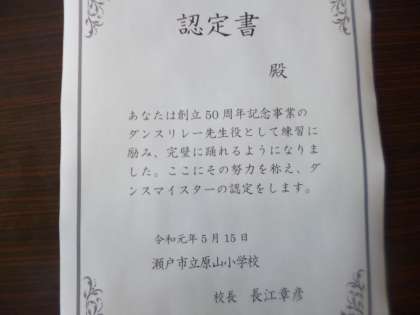 認定書
殿
あなたは創立50周年記念事業の
ダンスリレー先生役として練習に
励み、完璧に踊れるようになりまし
た。ここにその努力を称え、ダ
ンスマイスターの認定をします。
令和元年5月15日
瀬戸市立原山小学校
校長 長江章彦